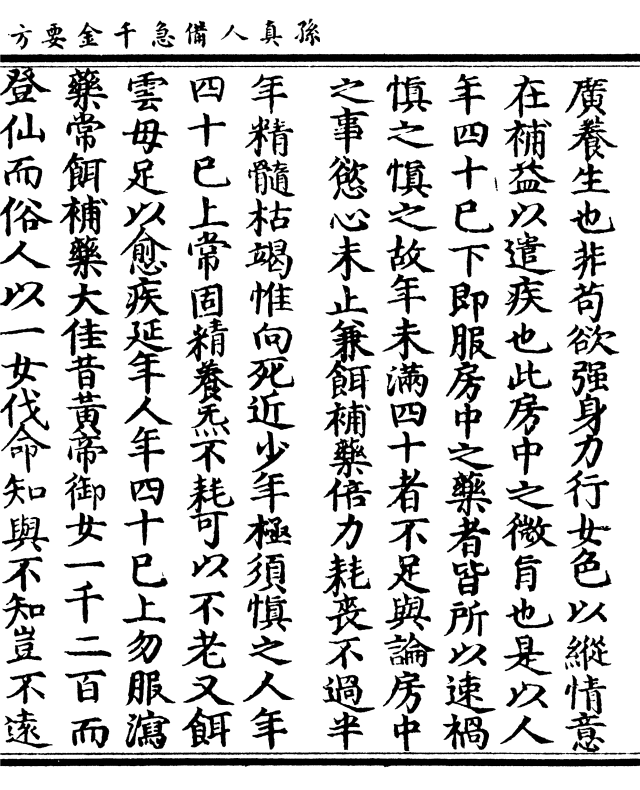 孫真人備急千金要方
廣養生也非苟欲强身力行女色以縱情意
在補益以遣疾也此房中之微旨也是以人
年四十已下即服房中之藥者皆所以速禍
慎之慎之故年未滿四十者不足與論房中
之事慾心未止兼餌補藥倍力耗喪不過半
年精髓枯竭惟向死近少年極須慎之人年
四十已上常固精養炁不耗可以不老又餌
雲母足以愈疾延年人年四十已上勿服瀉
藥常餌補藥大佳昔黃帝御女一千二百而
登仙而俗人以一女伐命知與不知豈不遠